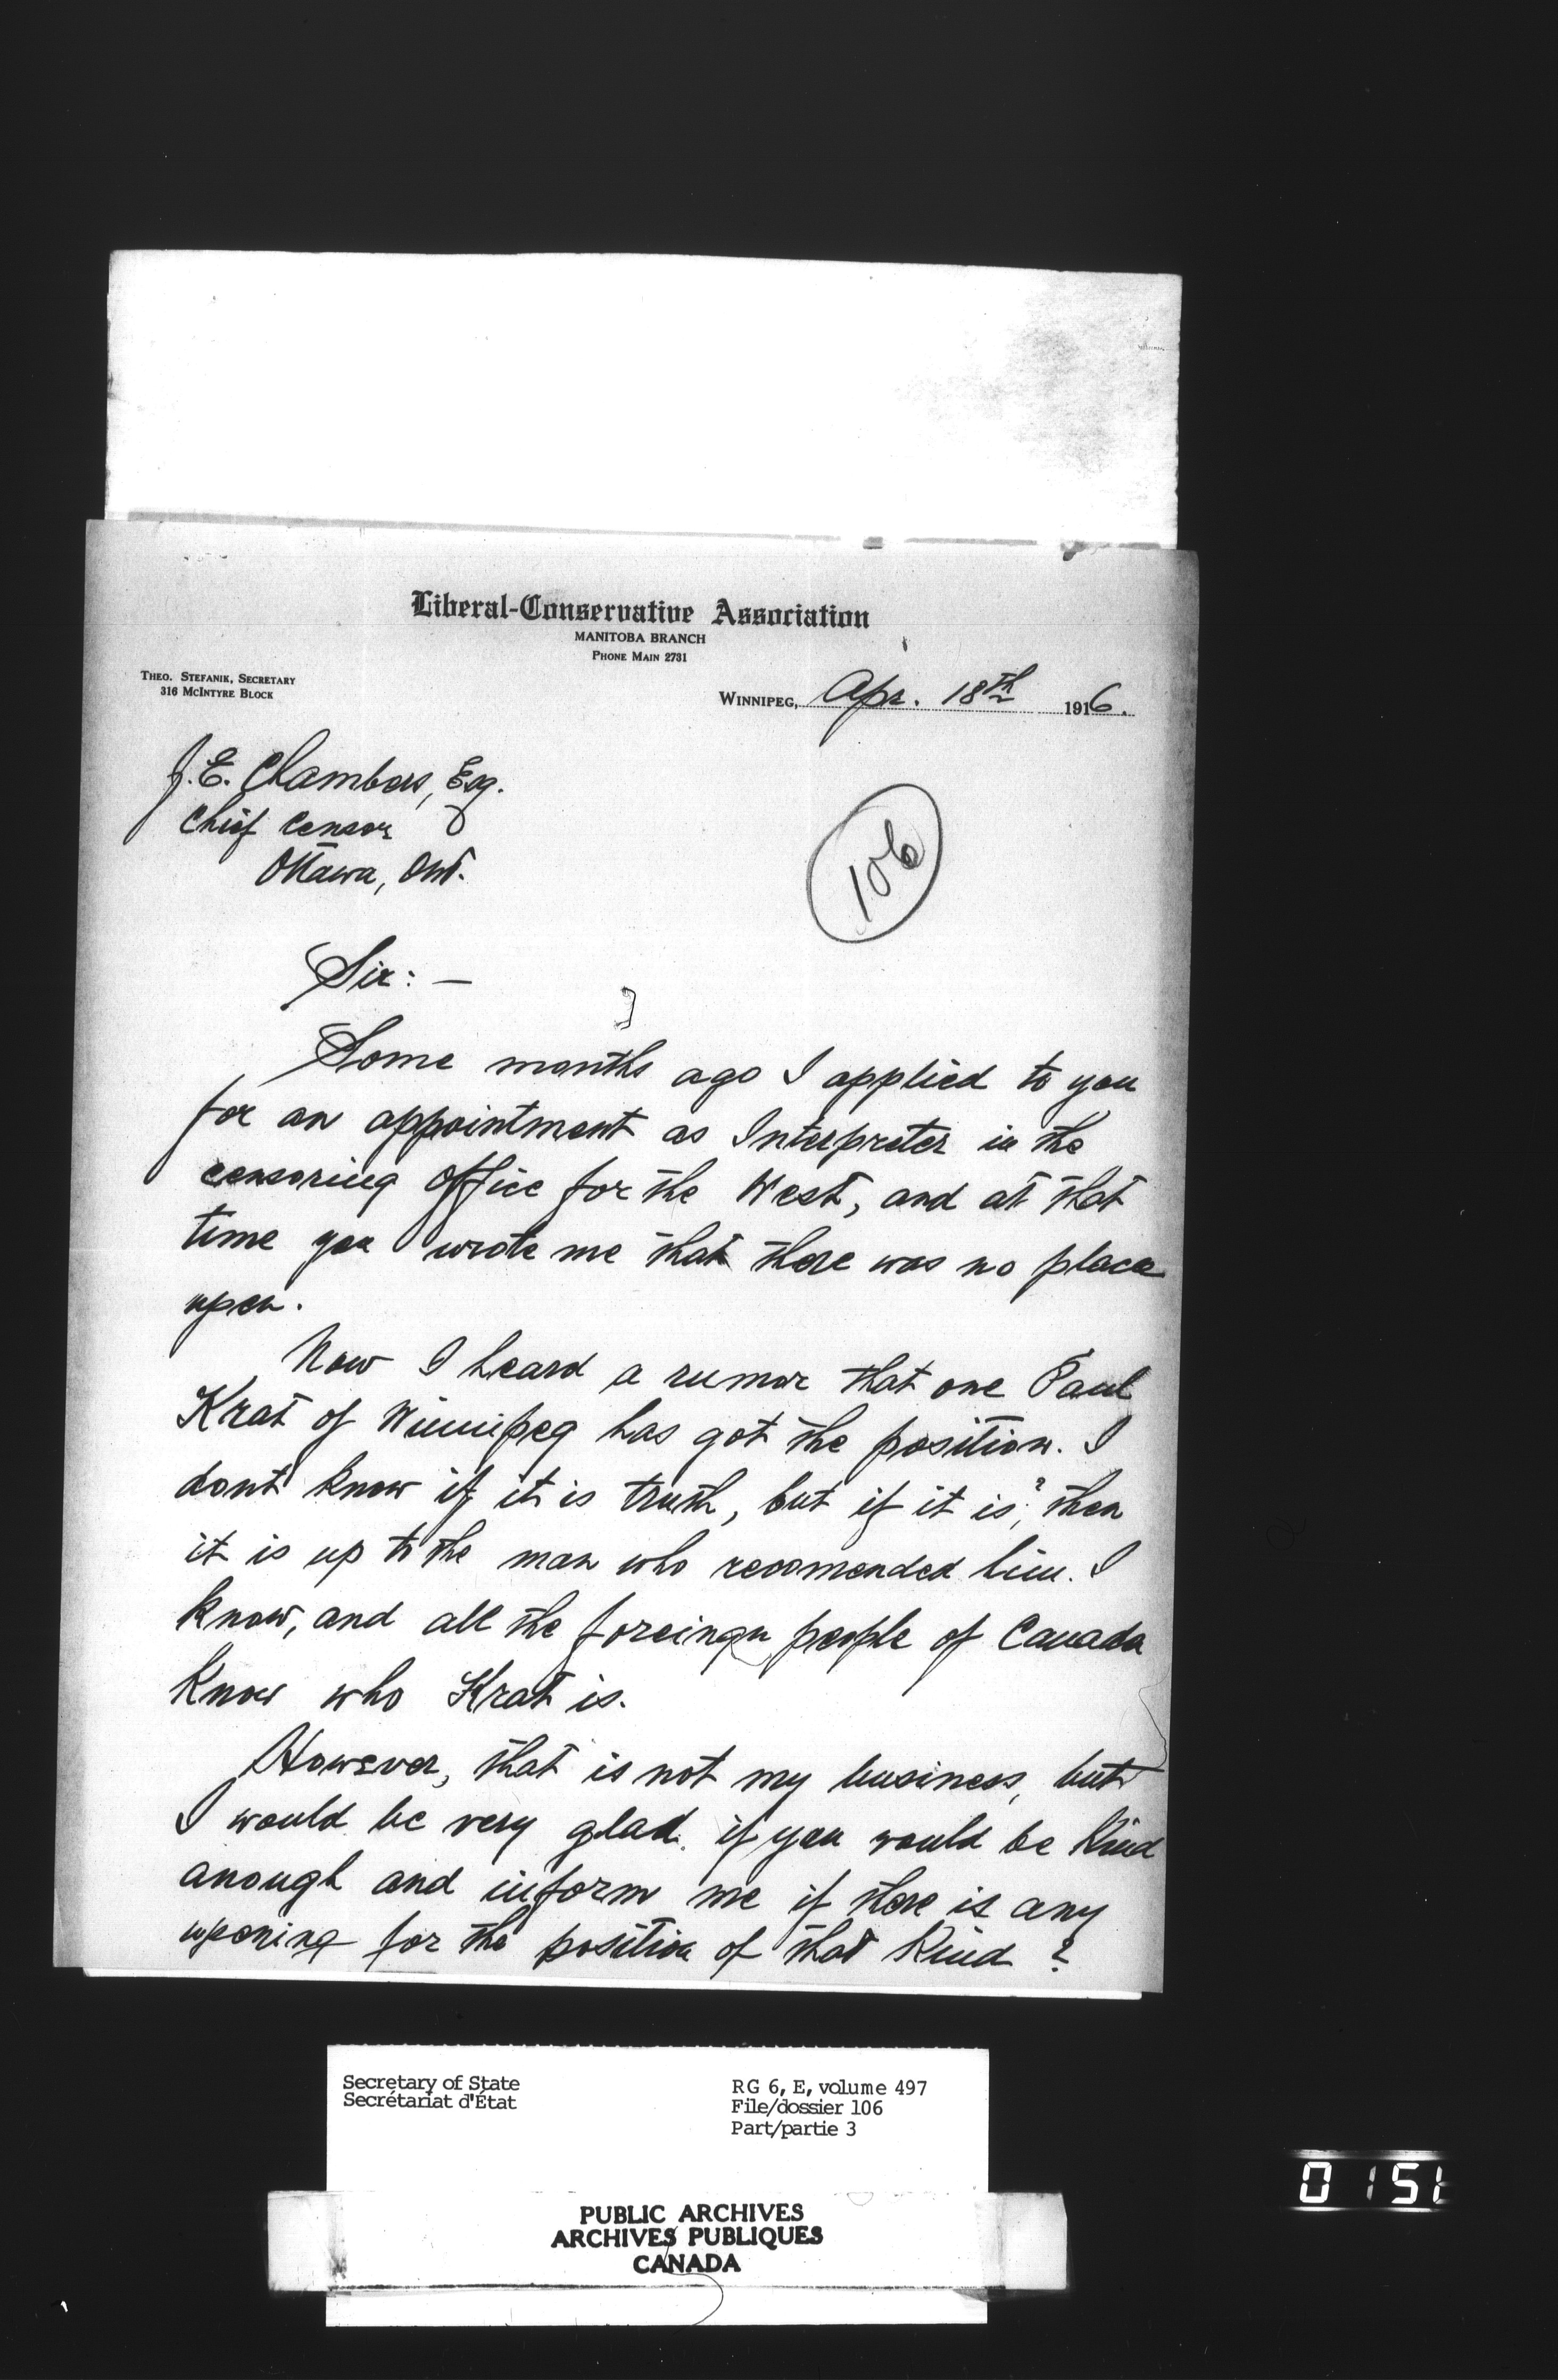 Liberal-Conservative Association
MANITOBA BRANCH
PHONE MAIN 2731
THEO. STEFANIK, SECRETARY
316 MCINTYRE BLOCK
WINNIPEG, Apr. 18th 1916.
J.E. Chambers, Esq.
Chief Censor
Ottawa, Ont.
106
Sir: —
Some months ago I applied to you
for an appointment as Interpreter in the
censoring office for the West, and at that
time you wrote me that there was no place
open.
Now I heard a rumor that one Paul
Krat of Winnipeg has got the position. I
dont know if it is truth, but if it is, then
it is up to the man who recomended him. I
know, and all the foreingn people of Canada
know who Krat is.
However, that is not my business, but
I would be very glad if you would be kind
anough and inform me if there is any
opening for the position of that kind?
Secretary of State
Secrétariat d'État
RG 6, E, volume 497
File/dossier 106
Part/partie 3
PUBLIC ARCHIVES
ARCHIVES PUBLIQUES
CANADA
0151